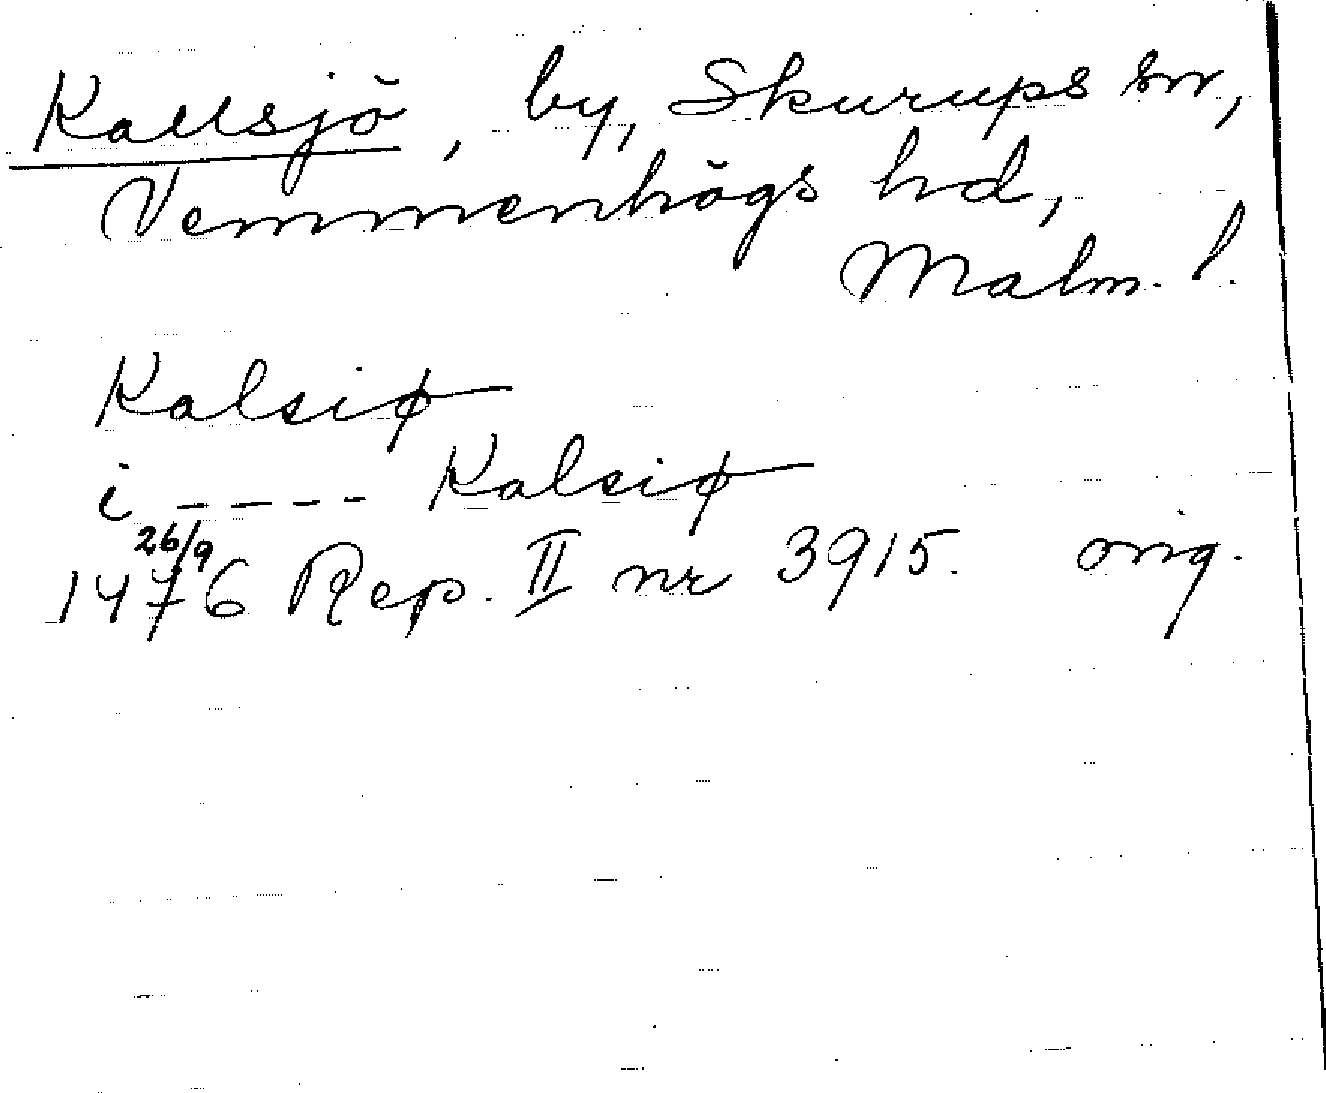 Kallsjö, by, Skurups sn,
Vemmenhögs hd,
Malm. l.
Kalsiø
i ---- Kalsiø
1476 26/9 Rep. II nr 3915. orig.